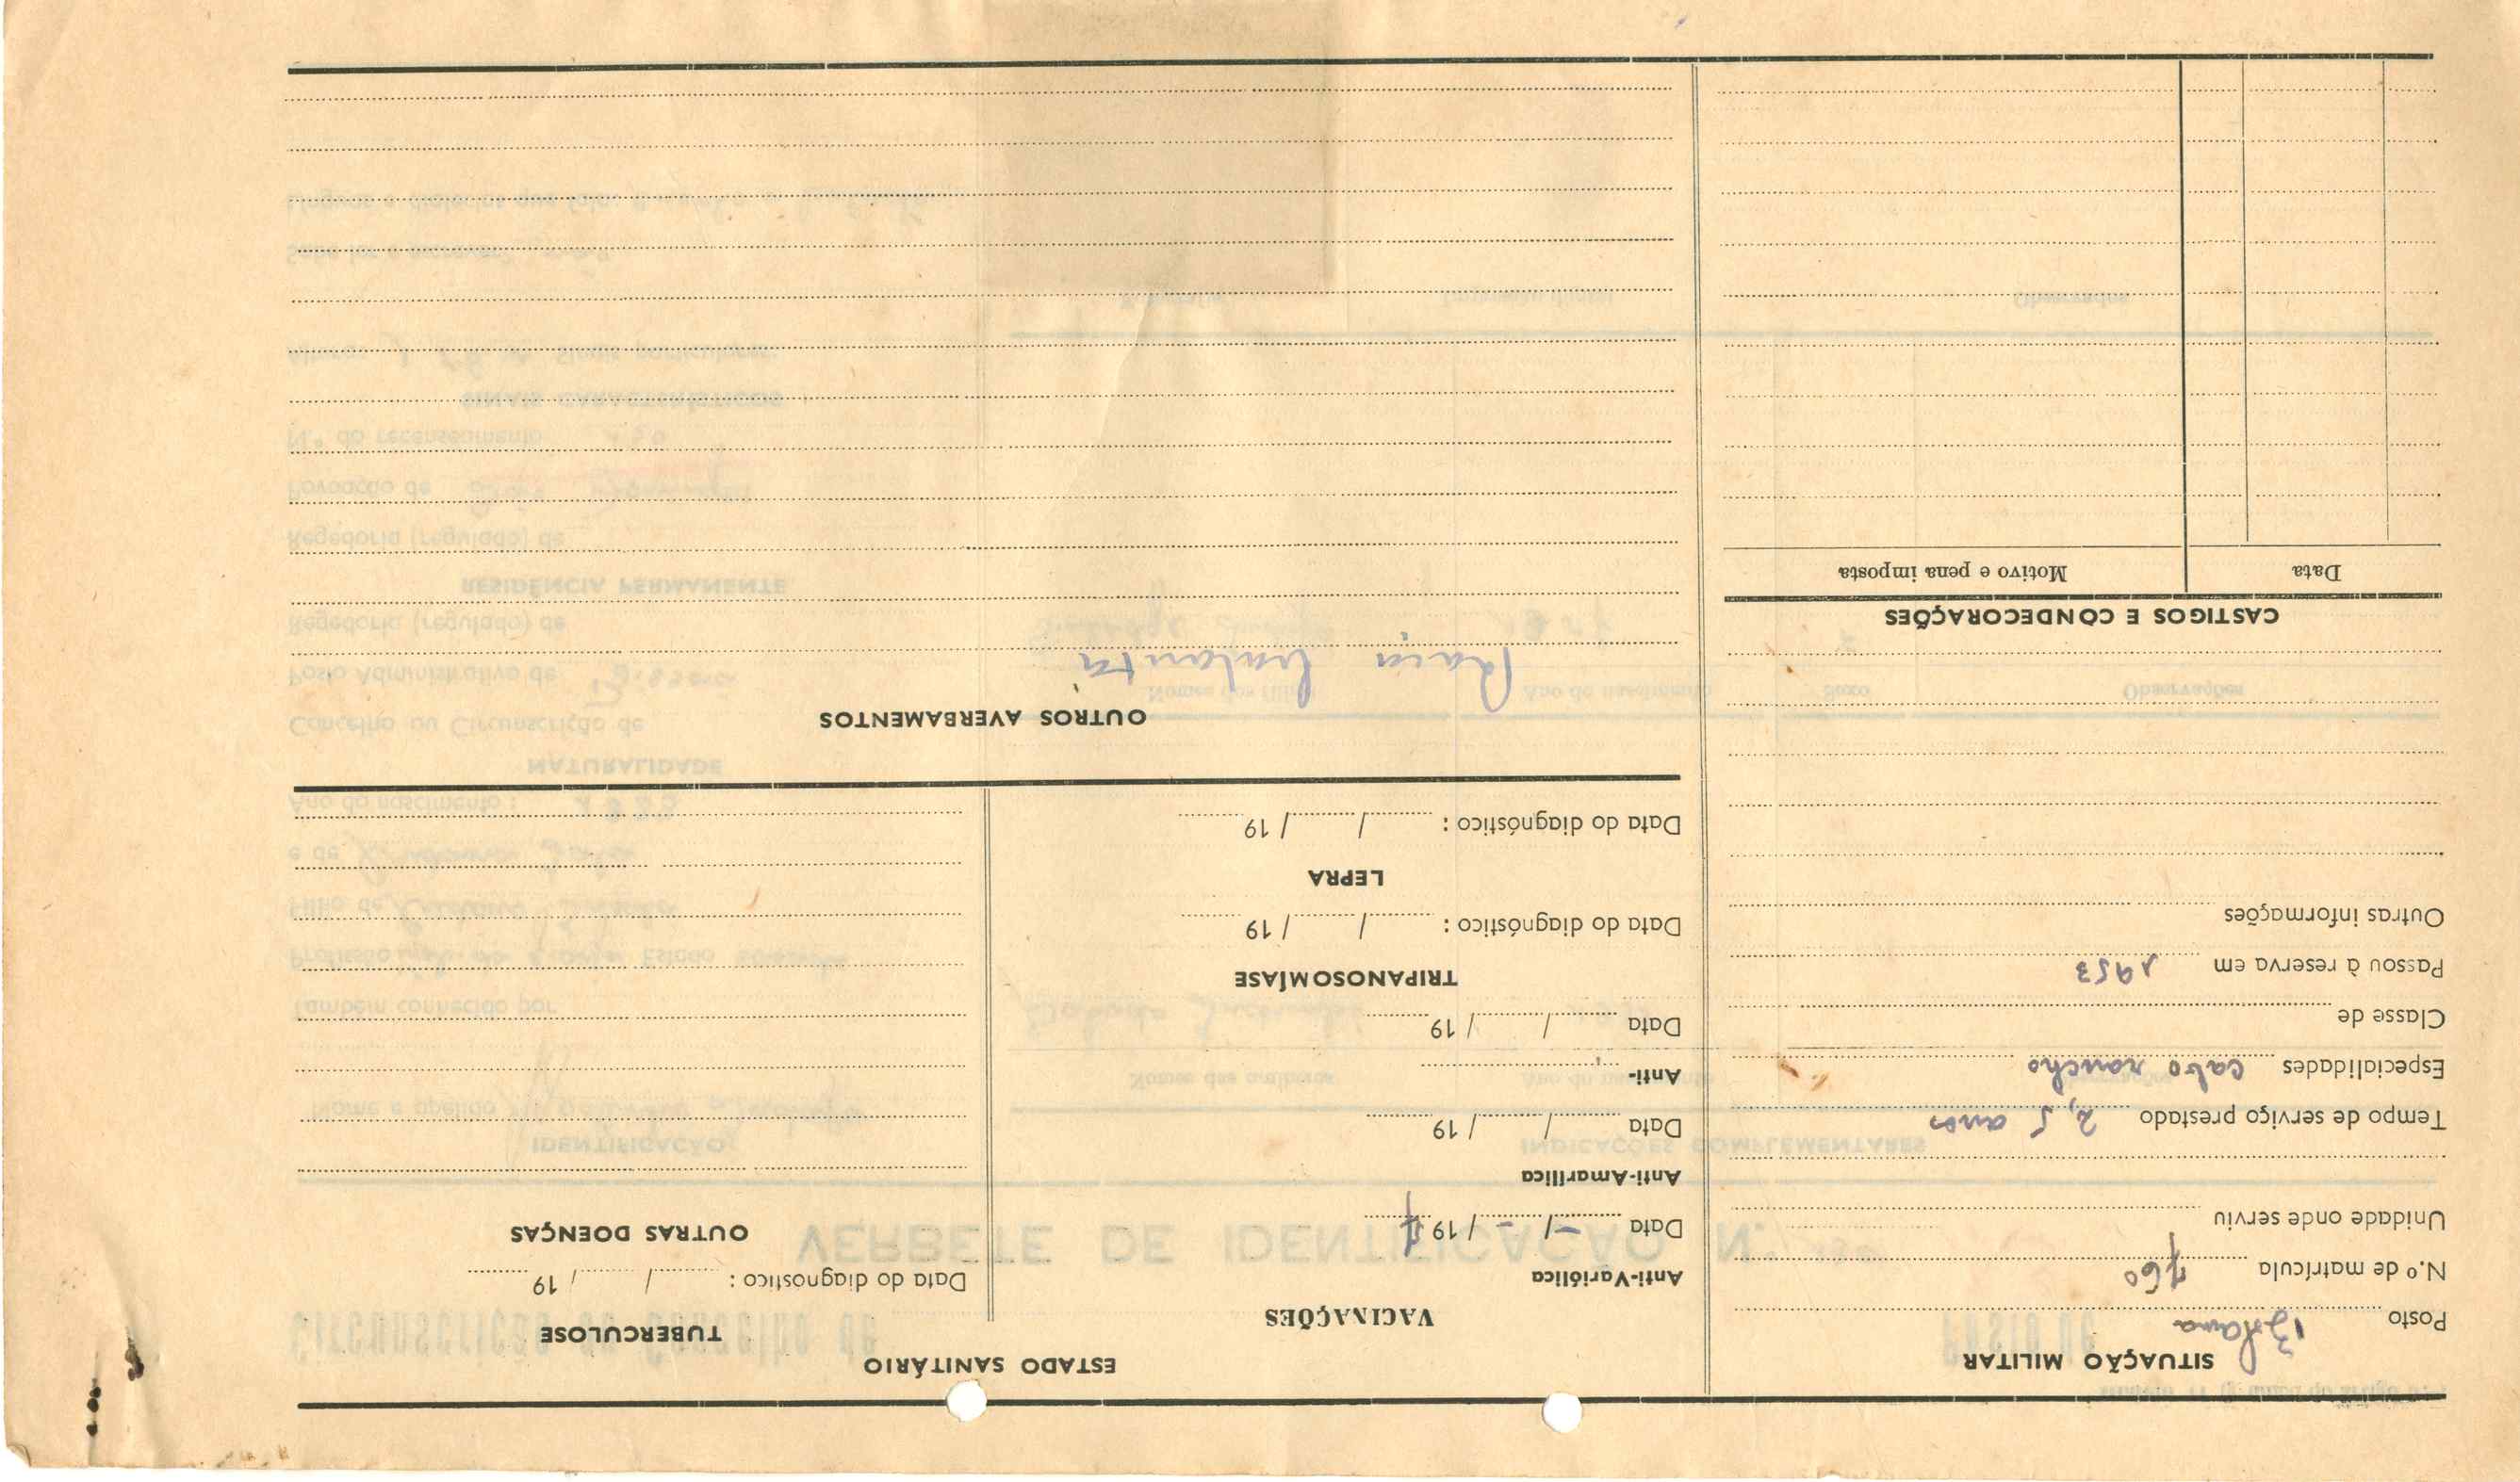 SITUAÇÃO MILITAR
Posto Bolama
N.º de matrícula 760
Unidade onde serviu
Tempo de serviço prestado 2,5 anos
Especialidades cabo rancho
Classe de
Passou à reserva em 1953
Outras informações
CASTIGOS E CONDECORAÇÕES
Data Motivo e pena imposta
ESTADO SANITÁRIO
VACINAÇÕES
Anti-Variólica
Data - / - / 19
Anti-Amarílica
Data / / 19
Anti-
Data / / 19
TRIPANOSOMÍASE
Data do diagnóstico : / / 19
LEPRA
Data do diagnóstico : / / 19
TUBERCULOSE
Data do diagnostico : / / 19
OUTRAS DOENÇAS
OUTROS AVERBAMENTOS
Raça